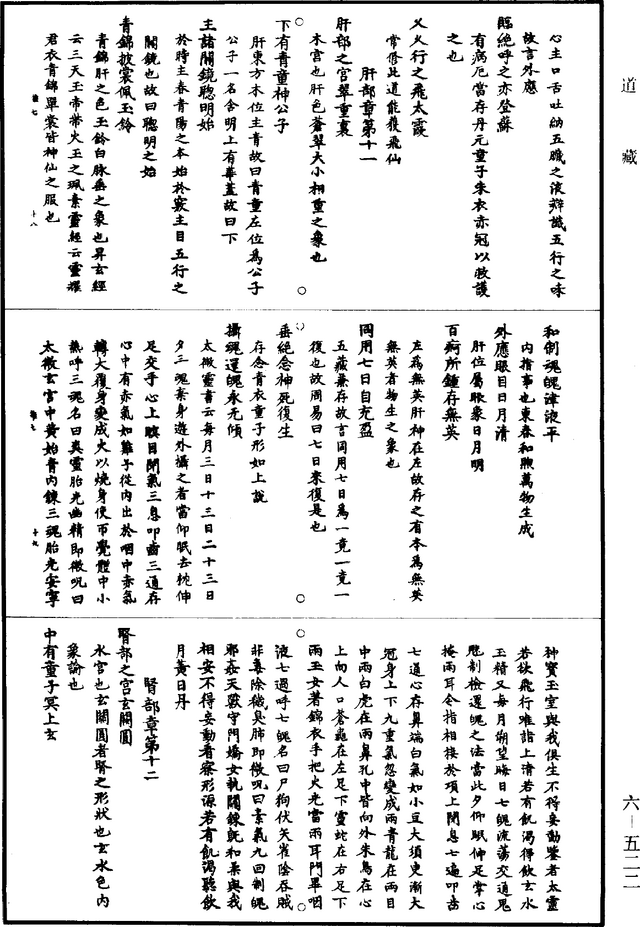 道藏
心主口舌吐納五臟之液辯識五行之味
故言外應
臨絕呼之亦登蘇
有病厄當存丹元童子朱衣赤冠以救護
之也
久久行之飛太霞
常修此道能獲飛仙
肝部章第十一
肝部之宮翠重裏
木宮也肝色蒼翠大小相重之象也
下有青童神公子
肝東方木位主青故曰青童左位為公子
公子一名含明上有華蓋故曰下
主諸關鏡聰明始
於時主春青陽之本始於竅主目五行之
關鏡也故曰聰明之始
青錦披裳佩玉鈴
青錦肝之色玉鈴白脉垂之象也昇玄經
云三天玉帝帶火玉之珮素靈經云靈耀
君衣青錦單裳皆神仙之服也
十八
和制魂魄津液平
內指事也東春和煦萬物生成
外應眼目日月清
肝位屬眼象日月明
百痾所鍾存無英
左為無英肝神在左故存之有本為無英
無英者物生之象也
同用七日自充盈
五藏兼存故言同用七日為一竟一竟一
復也故周易曰七日來復是也
垂絕念神死復生
存念青衣童子形如上說
攝魂還魄永无傾
太微靈書云每月三日十三日二十三日
夕三魂棄身遊外攝之者當仰眠去枕伸
足交手心上瞑目閉氣三息叩齒三通存
心中有赤氣如雞子從內出於咽中赤氣
轉大覆身變成火以燒身使帀覺體中小
熱呼三魂名曰爽靈胎光幽精即微呪曰
太微玄宮中黃始青內鍊三魂胎光安寧
十九
神寶玉室與我俱生不得妄動鑒者太靈
若欲飛行唯詣上清若有飢渴得飲玄水
玉精又每月朔望晦日七魄流蕩交通鬼
魅制檢還魄之法當此夕仰眠伸足掌心
掩兩耳令指相接於項上閉息七遍叩齒
七通心存鼻端白氣如小豆大須臾漸大
冠身上下九重氣忽變成兩青龍在兩目
中兩白虎在兩鼻孔中皆向外朱鳥在心
上向人口蒼龜在左足下靈蛇在右足下
兩玉女著錦衣手把火光當兩耳門畢咽
液七過呼七魄名曰尸狗伏矢雀陰吞賊
非毒除穢臭肺即微呪曰素氣九回制魄
邪姦天獸守門嬌女執關鍊魄和柔與我
相安不得妄動看察形源若有飢渴聽飲
月黃日丹
腎部章第十二
腎部之宮玄闕圓
水宮也玄闕圓者腎之形狀也玄水色內
象諭也
中有童子冥上玄
六-五二二